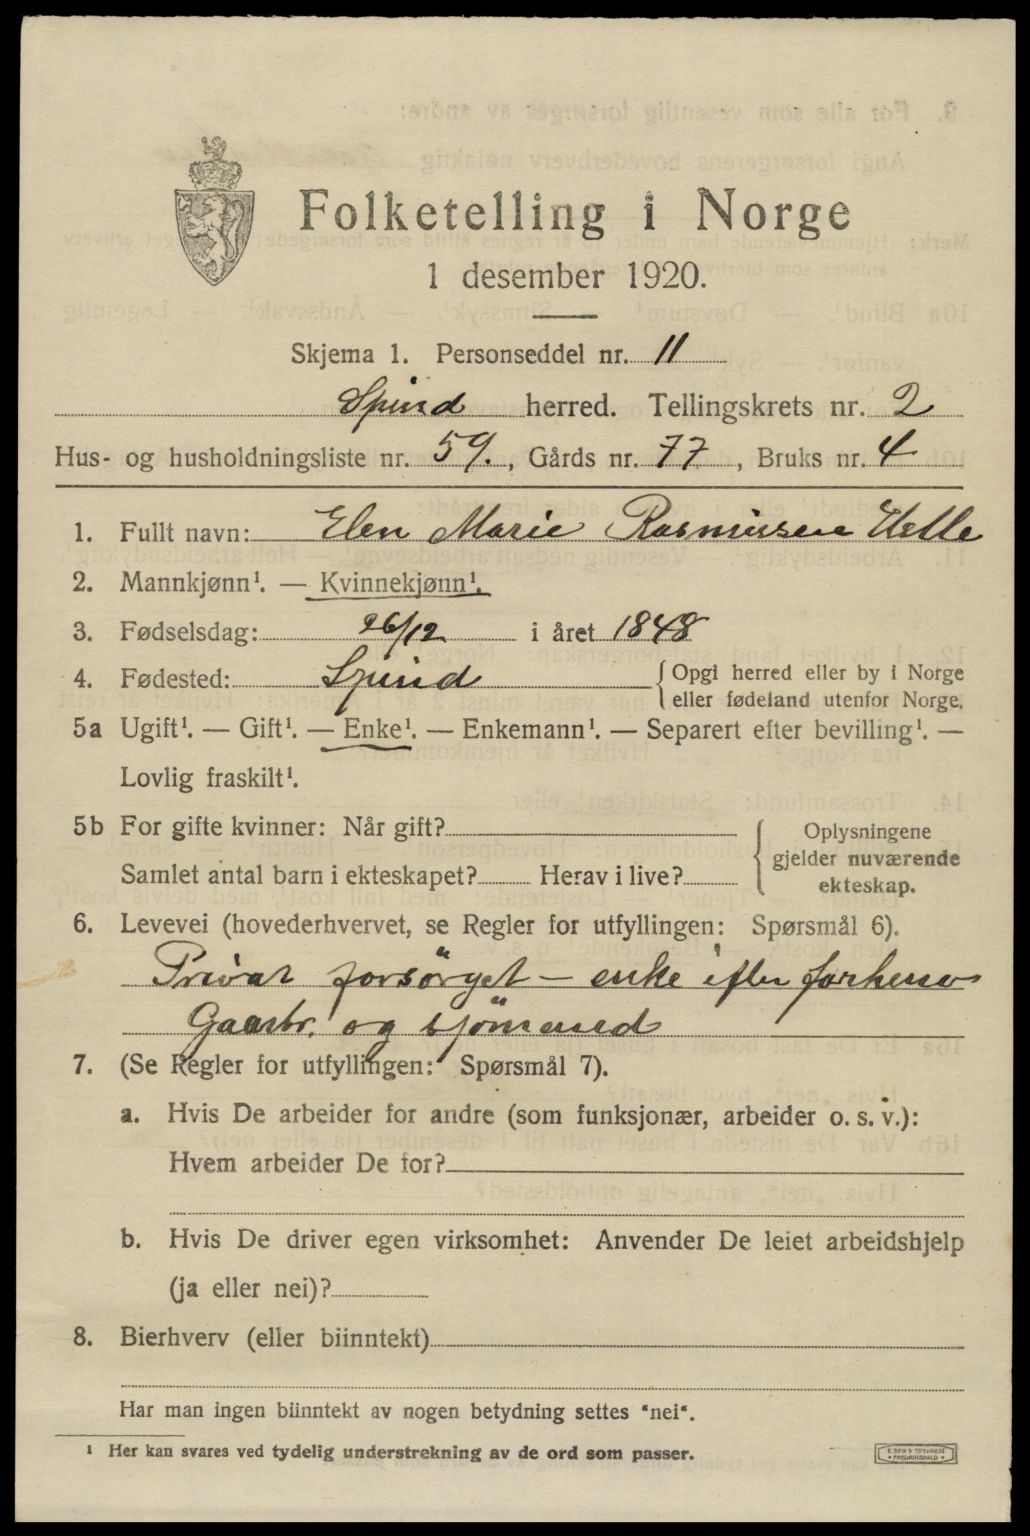 Folketelling i Norge
1 desember 1920.
Skjema 1. Personseddel nr. 11
Spind herred. Tellingskrets nr. 2
Hus- og husholdningsliste nr. 59., Gårds nr. 77, Bruks nr. 4
1. Fullt navn: Elen Marie Rasmussen Helle
2. Mannkjønn¹. — Kvinnekjønn¹.
3. Fødselsdag: 26/12 i året 1848
4. Fødested: Spind { Opgi herred eller by i Norge
eller fødeland utenfor Norge.
5a Ugift¹. — Gift¹. — Enke¹. — Enkemann¹. — Separert efter bevilling¹. —
Lovlig fraskilt¹.
5b For gifte kvinner: Når gift?
Samlet antal barn i ekteskapet? Herav i live?
{ Oplysningene
gjelder nuværende
ekteskap.
6. Levevei (hovederhvervet, se Regler for utfyllingen: Spørsmål 6).
Privat forsörget — enke efter forhenv
Gaarbr. og sjömand
7. (Se Regler for utfyllingen: Spørsmål 7).
a. Hvis De arbeider for andre (som funksjonær, arbeider o. s. v.):
Hvem arbeider De for?
b. Hvis De driver egen virksomhet: Anvender De leiet arbeidshjelp
(ja eller nei)?
8. Bierhverv (eller biinntekt)
Har man ingen biinntekt av nogen betydning settes "nei".
¹ Her kan svares ved tydelig understrekning av de ord som passer.